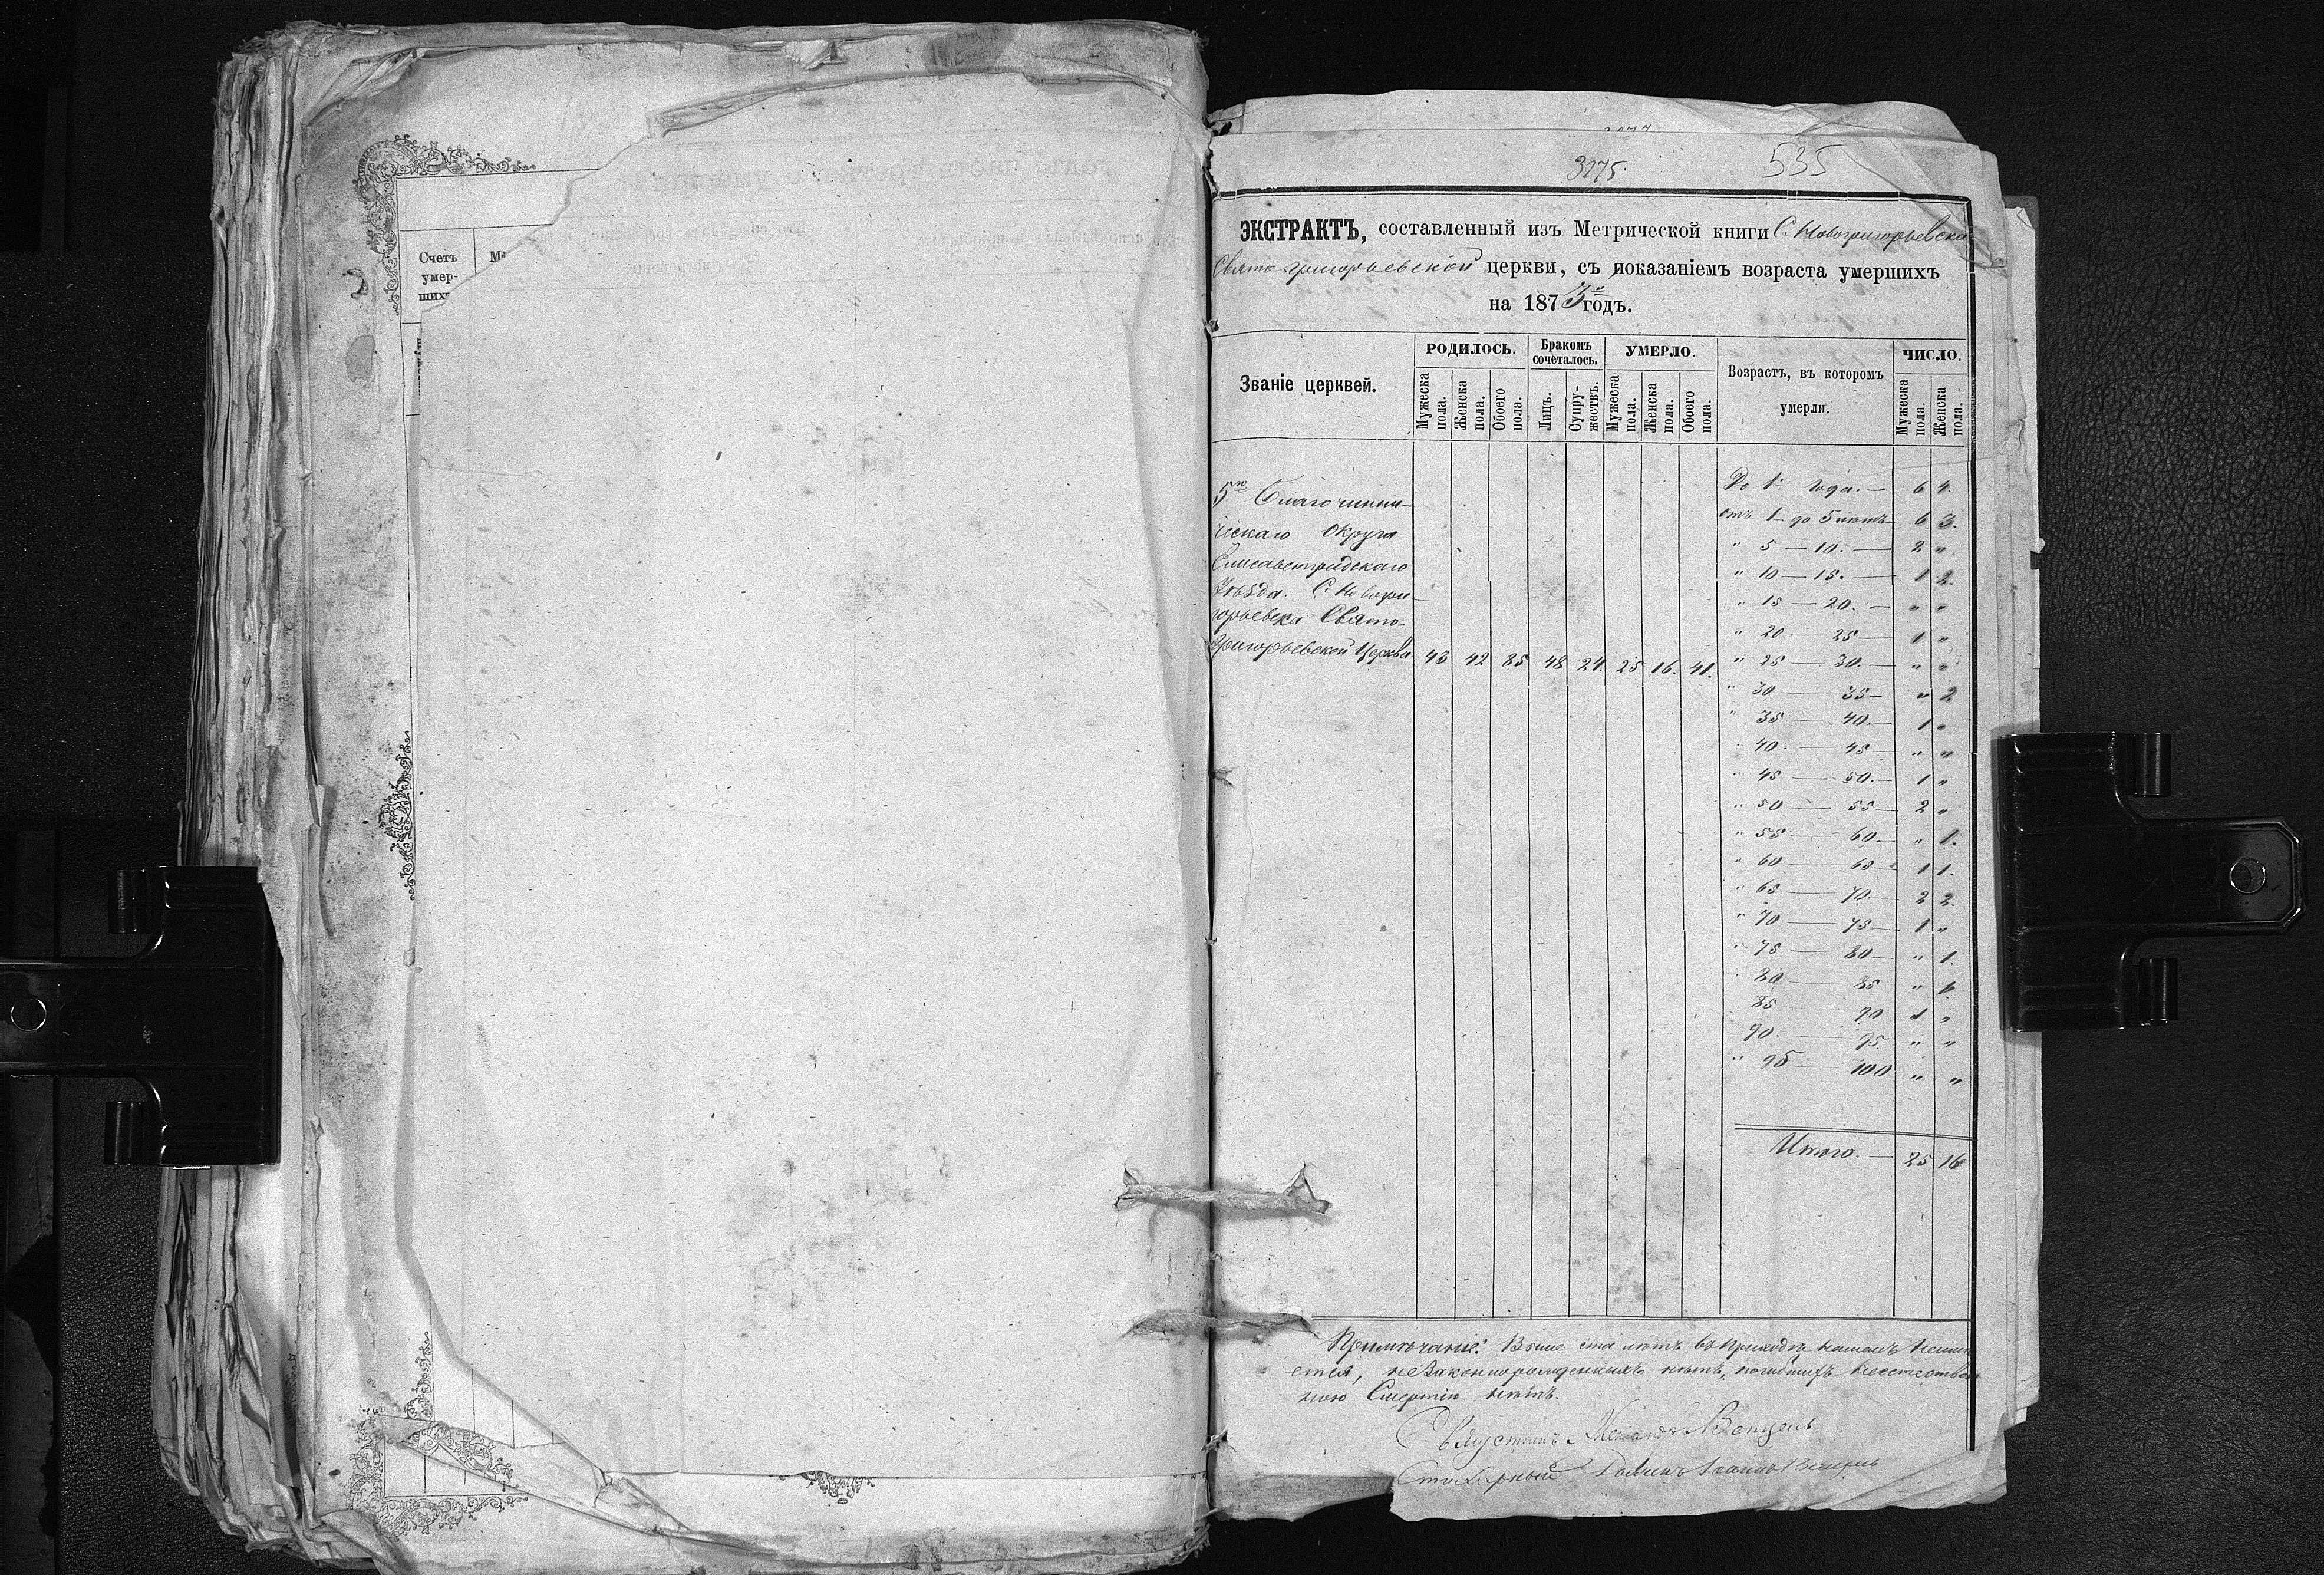 Счетъ
умер-
ших
3275.
535
ЭКСТРАКТЪ, составленный изъ Метрической книги С. Новогригорьевска
Свято Григорьевской церкви, съ показаніемъ возраста умершихъ
на 1873й годъ.
Званіе церквей.
РОДИЛОСЬ.
Мужеска пола.
Женска пола.
Обоего пола.
Бракомъ сочеталось.
Лицъ.
Супружествъ.
УМЕРЛО.
Мужеска пола.
Женска пола.
Обоего пола.
Возрастъ, въ которомъ
умерли.
ЧИСЛО.
Мужеска пола.
Женска пола.
5го Благочинни-
ческаго Округа
Елисаветградскаго
Уѣзда. С. Новогри-
горьевска Свято-
Григорьевской Церкви 43 42 85 48 24 25 16. 41.
До 1 года. — 6 4.
отъ 1 — до 5 летъ — 6 3.
" 5 — 10. — 2 "
" 10 — 15. — 1 2.
" 15 — 20. — " "
" 20 — 25 — 1 "
" 25 — 30. — " "
" 30 — 35 — " 2
" 35 — 40. — 1 "
" 40. — 45 — " "
" 45 — 50. — 1 "
" 50 — 55 — 2 "
" 55 — 60 — " 1.
" 60 — 65 — 1 1.
" 65 — 70. — 2 2.
" 70 — 75 — 1 "
" 75 — 80 — " 1.
80 — 85 "
85 90 1 "
90. — 95 " "
" 95 — 100 " "
Итого. — 25 16
Примѣчаніе: Выше ста летъ въ приходѣ нашемъ
незаконнорожденныхъ нетъ, погибшихъ неестествен
ною Смертію нетъ.
Стихарный